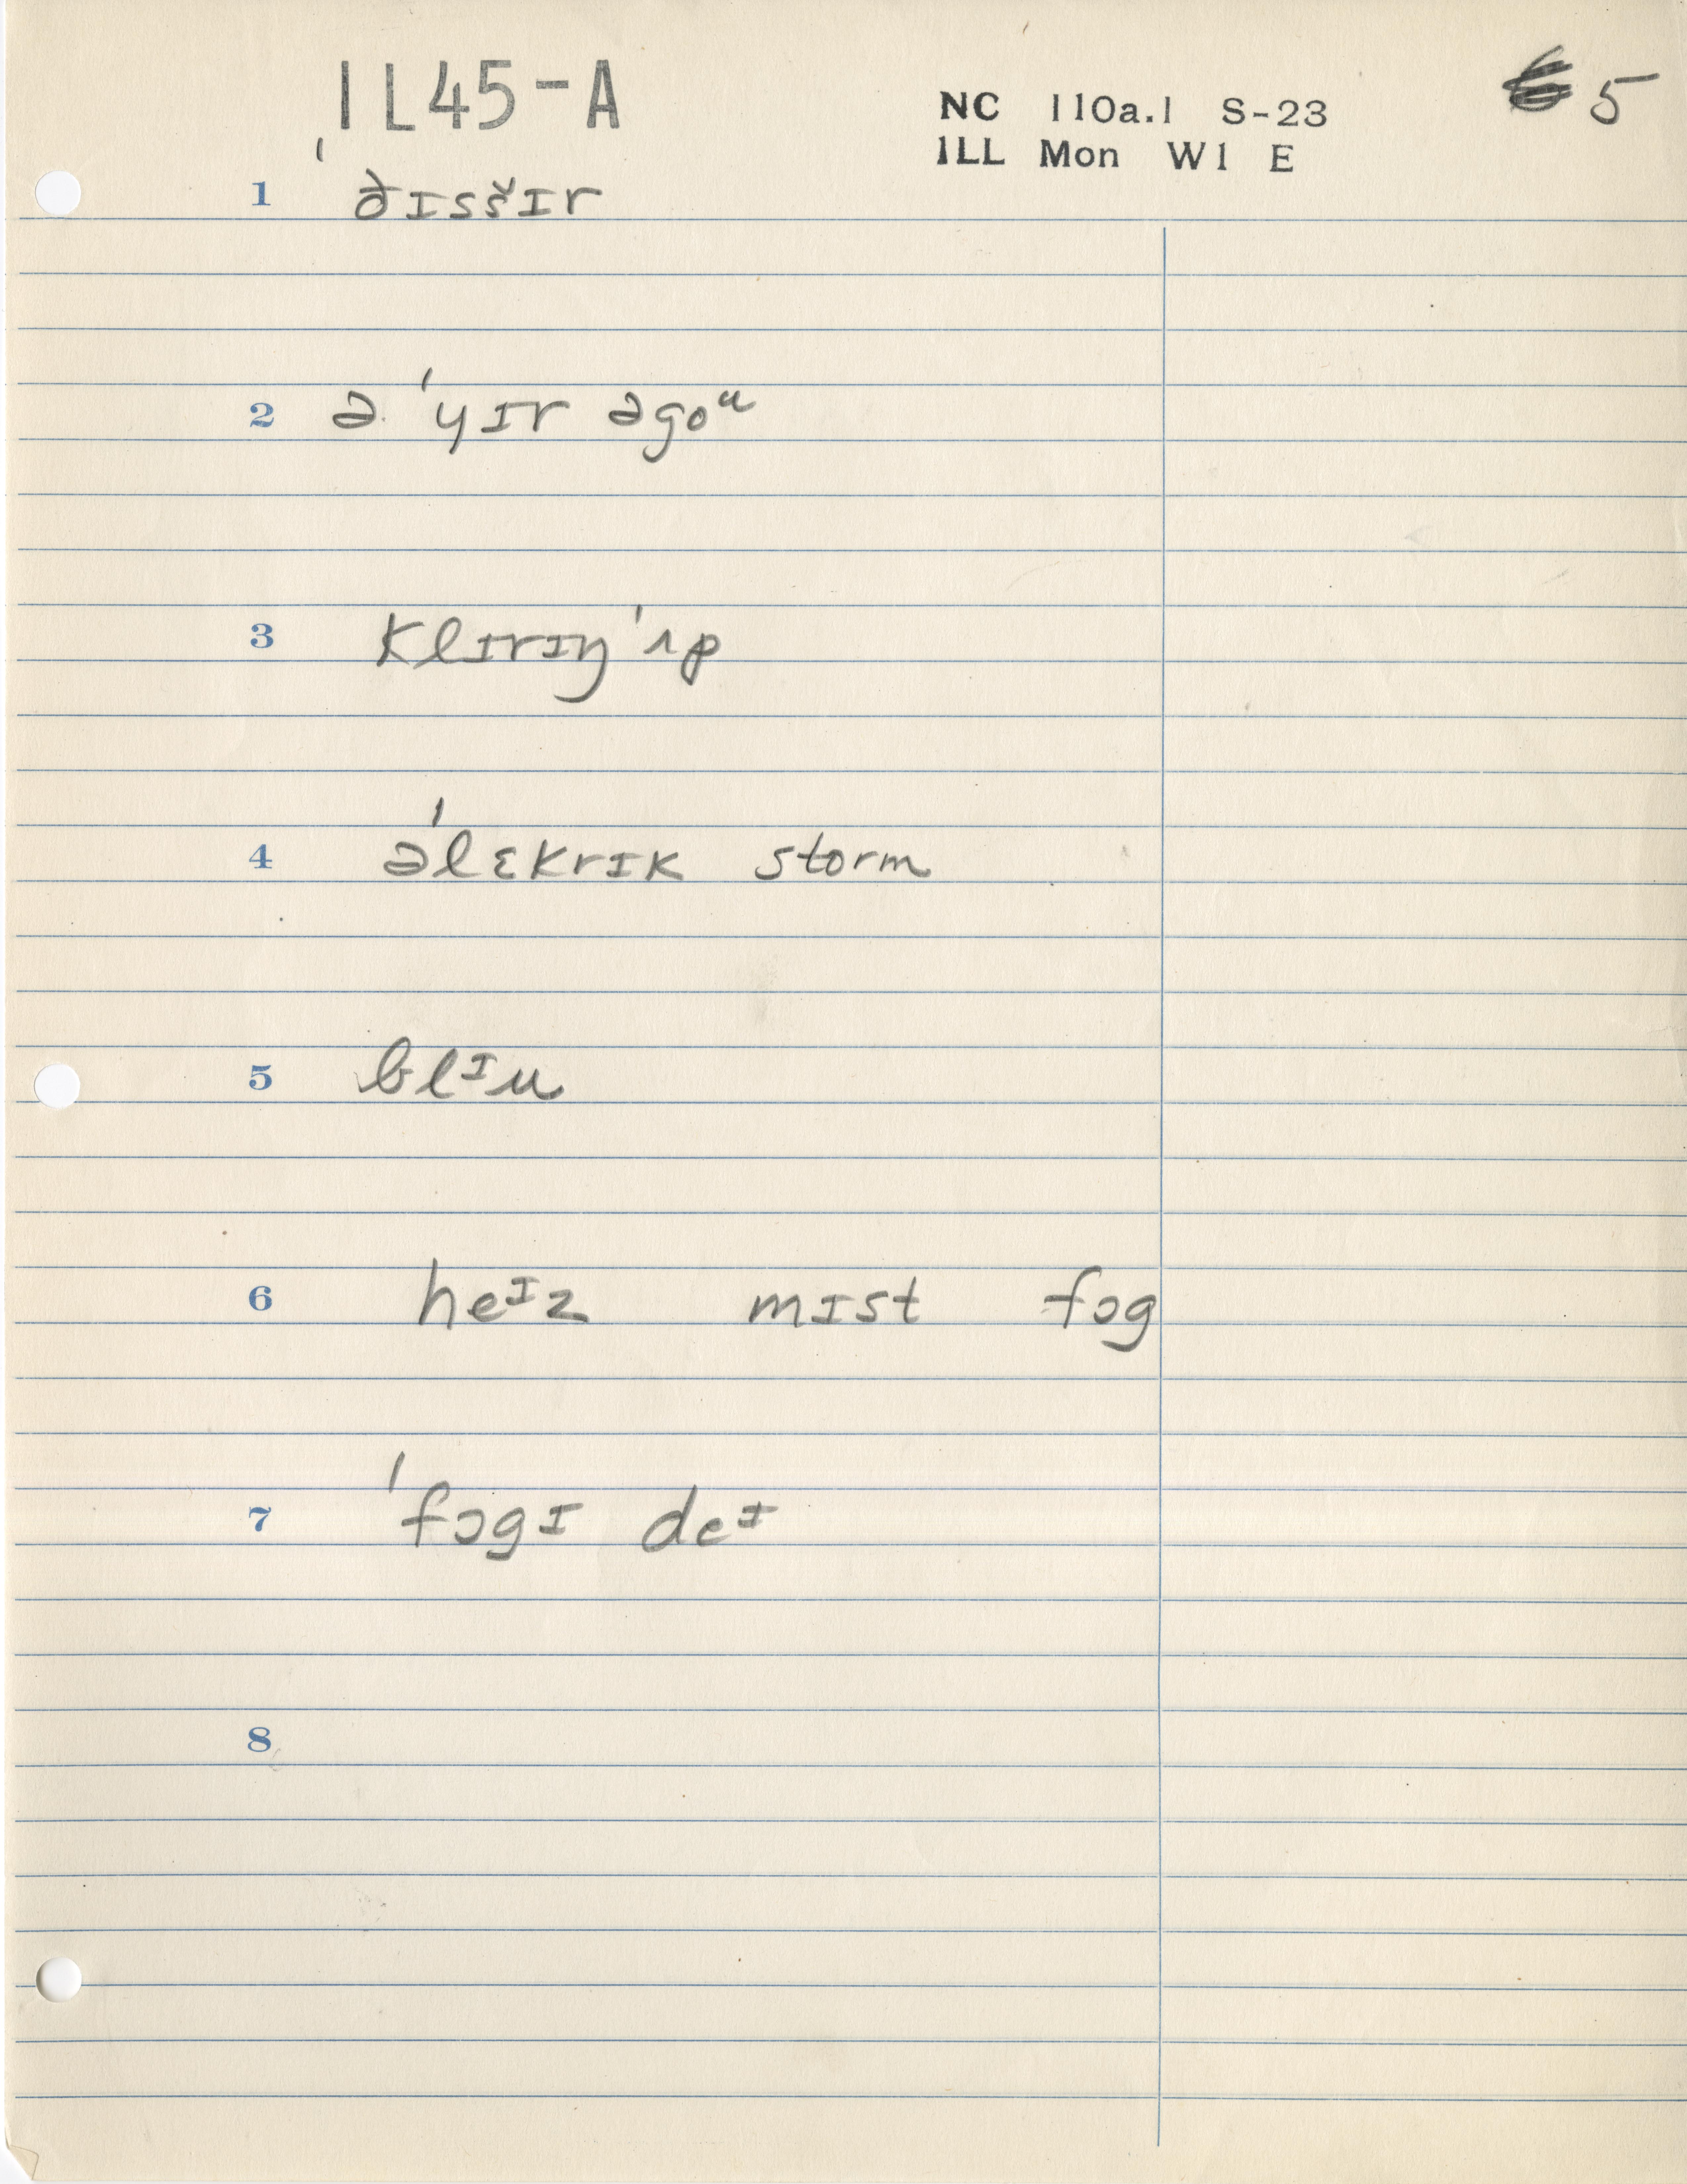 IL45-A
NC 110a.1 S-23
ILL Mon W1 E
5
1 ˈðɪsšɪr
2 ə ˈyɪr əgoᵘ
3 klɪrɪŋ ˈʌp
4 əˈlɛkrɪk storm
5 blᶦu
6 heᶦz mɪst fɔg
7 ˈfɔgɪ deᶦ
8